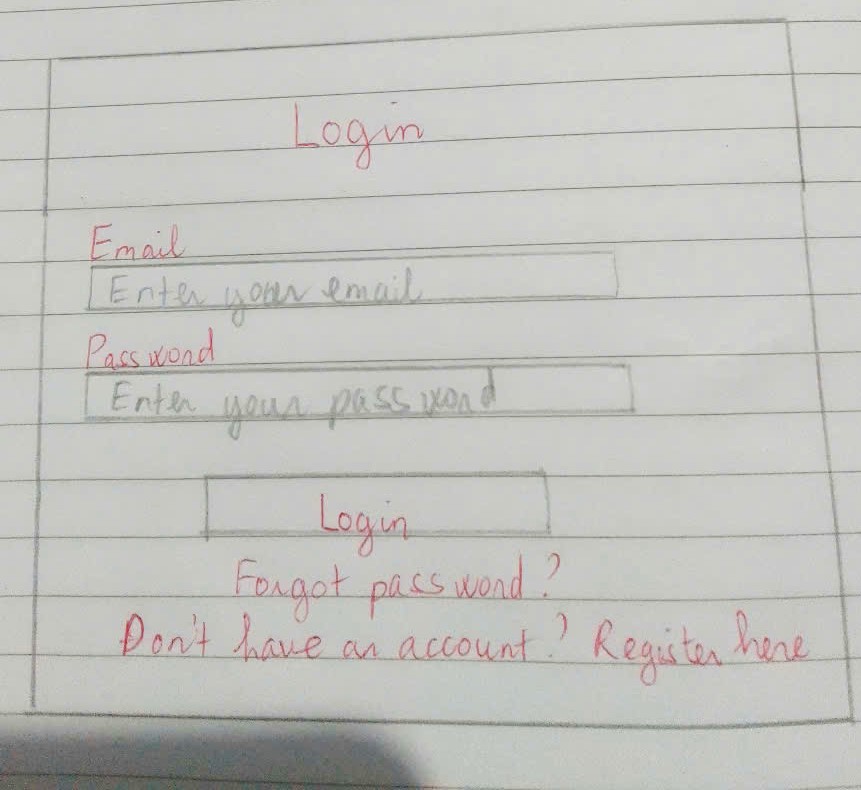 Login
Email
Enter your email
Password
Enter your password
Login
Forgot password?
Don't have an account? Register here